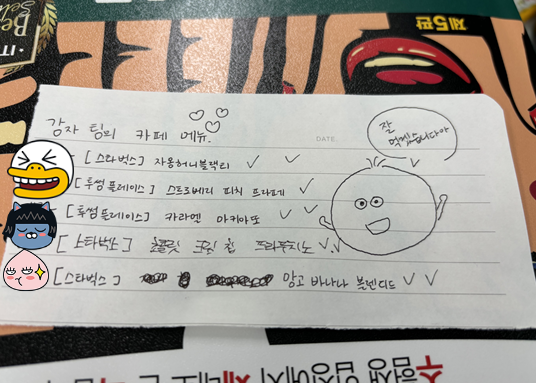 제5판
감자 팀의 카페 메뉴.
DATE.
[스타벅스] 자몽허니블랙티
[투썸플레이스] 스트로베리 피치 프라페
[투썸플레이스] 카라멜 마키아또
[스타벅스] 초콜릿 크림 칩 프라푸치노
[스타벅스] 망고 바나나 블렌디드
잘
먹겠습니다아